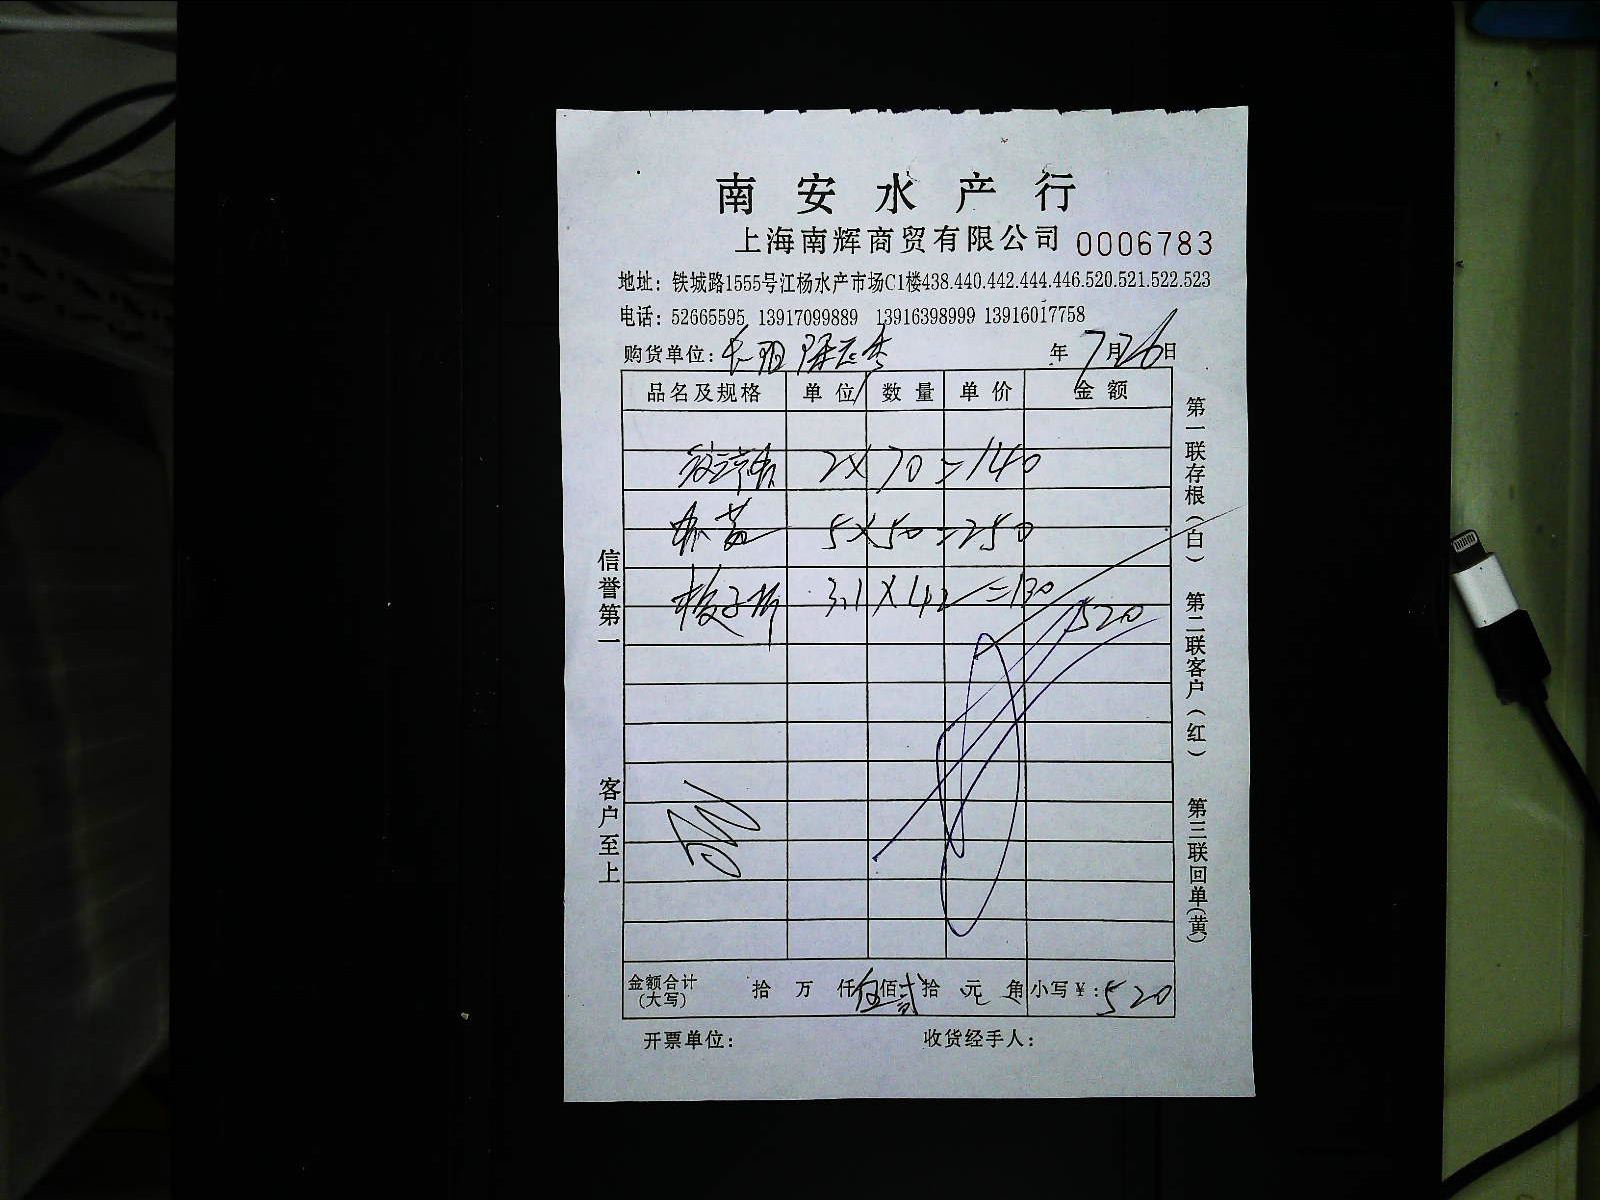 南安水产行
上海南辉商贸有限公司 0006783
地址：铁城路1555号江杨水产市场C1楼438.440.442.444.446.520.521.522.523
电话：52665595 13917099889 13916398999 13916017758
购货单位： 年7月26日
品名及规格 单位 数量 单价 金额
2×70=140
5×50=250
3.1×42=130
520
金额合计(大写) 拾 万 仟伍佰贰拾 元 角 小写¥：520
开票单位： 收货经手人：
信誉第一 客户至上
第一联存根（白） 第二联客户（红） 第三联回单（黄）